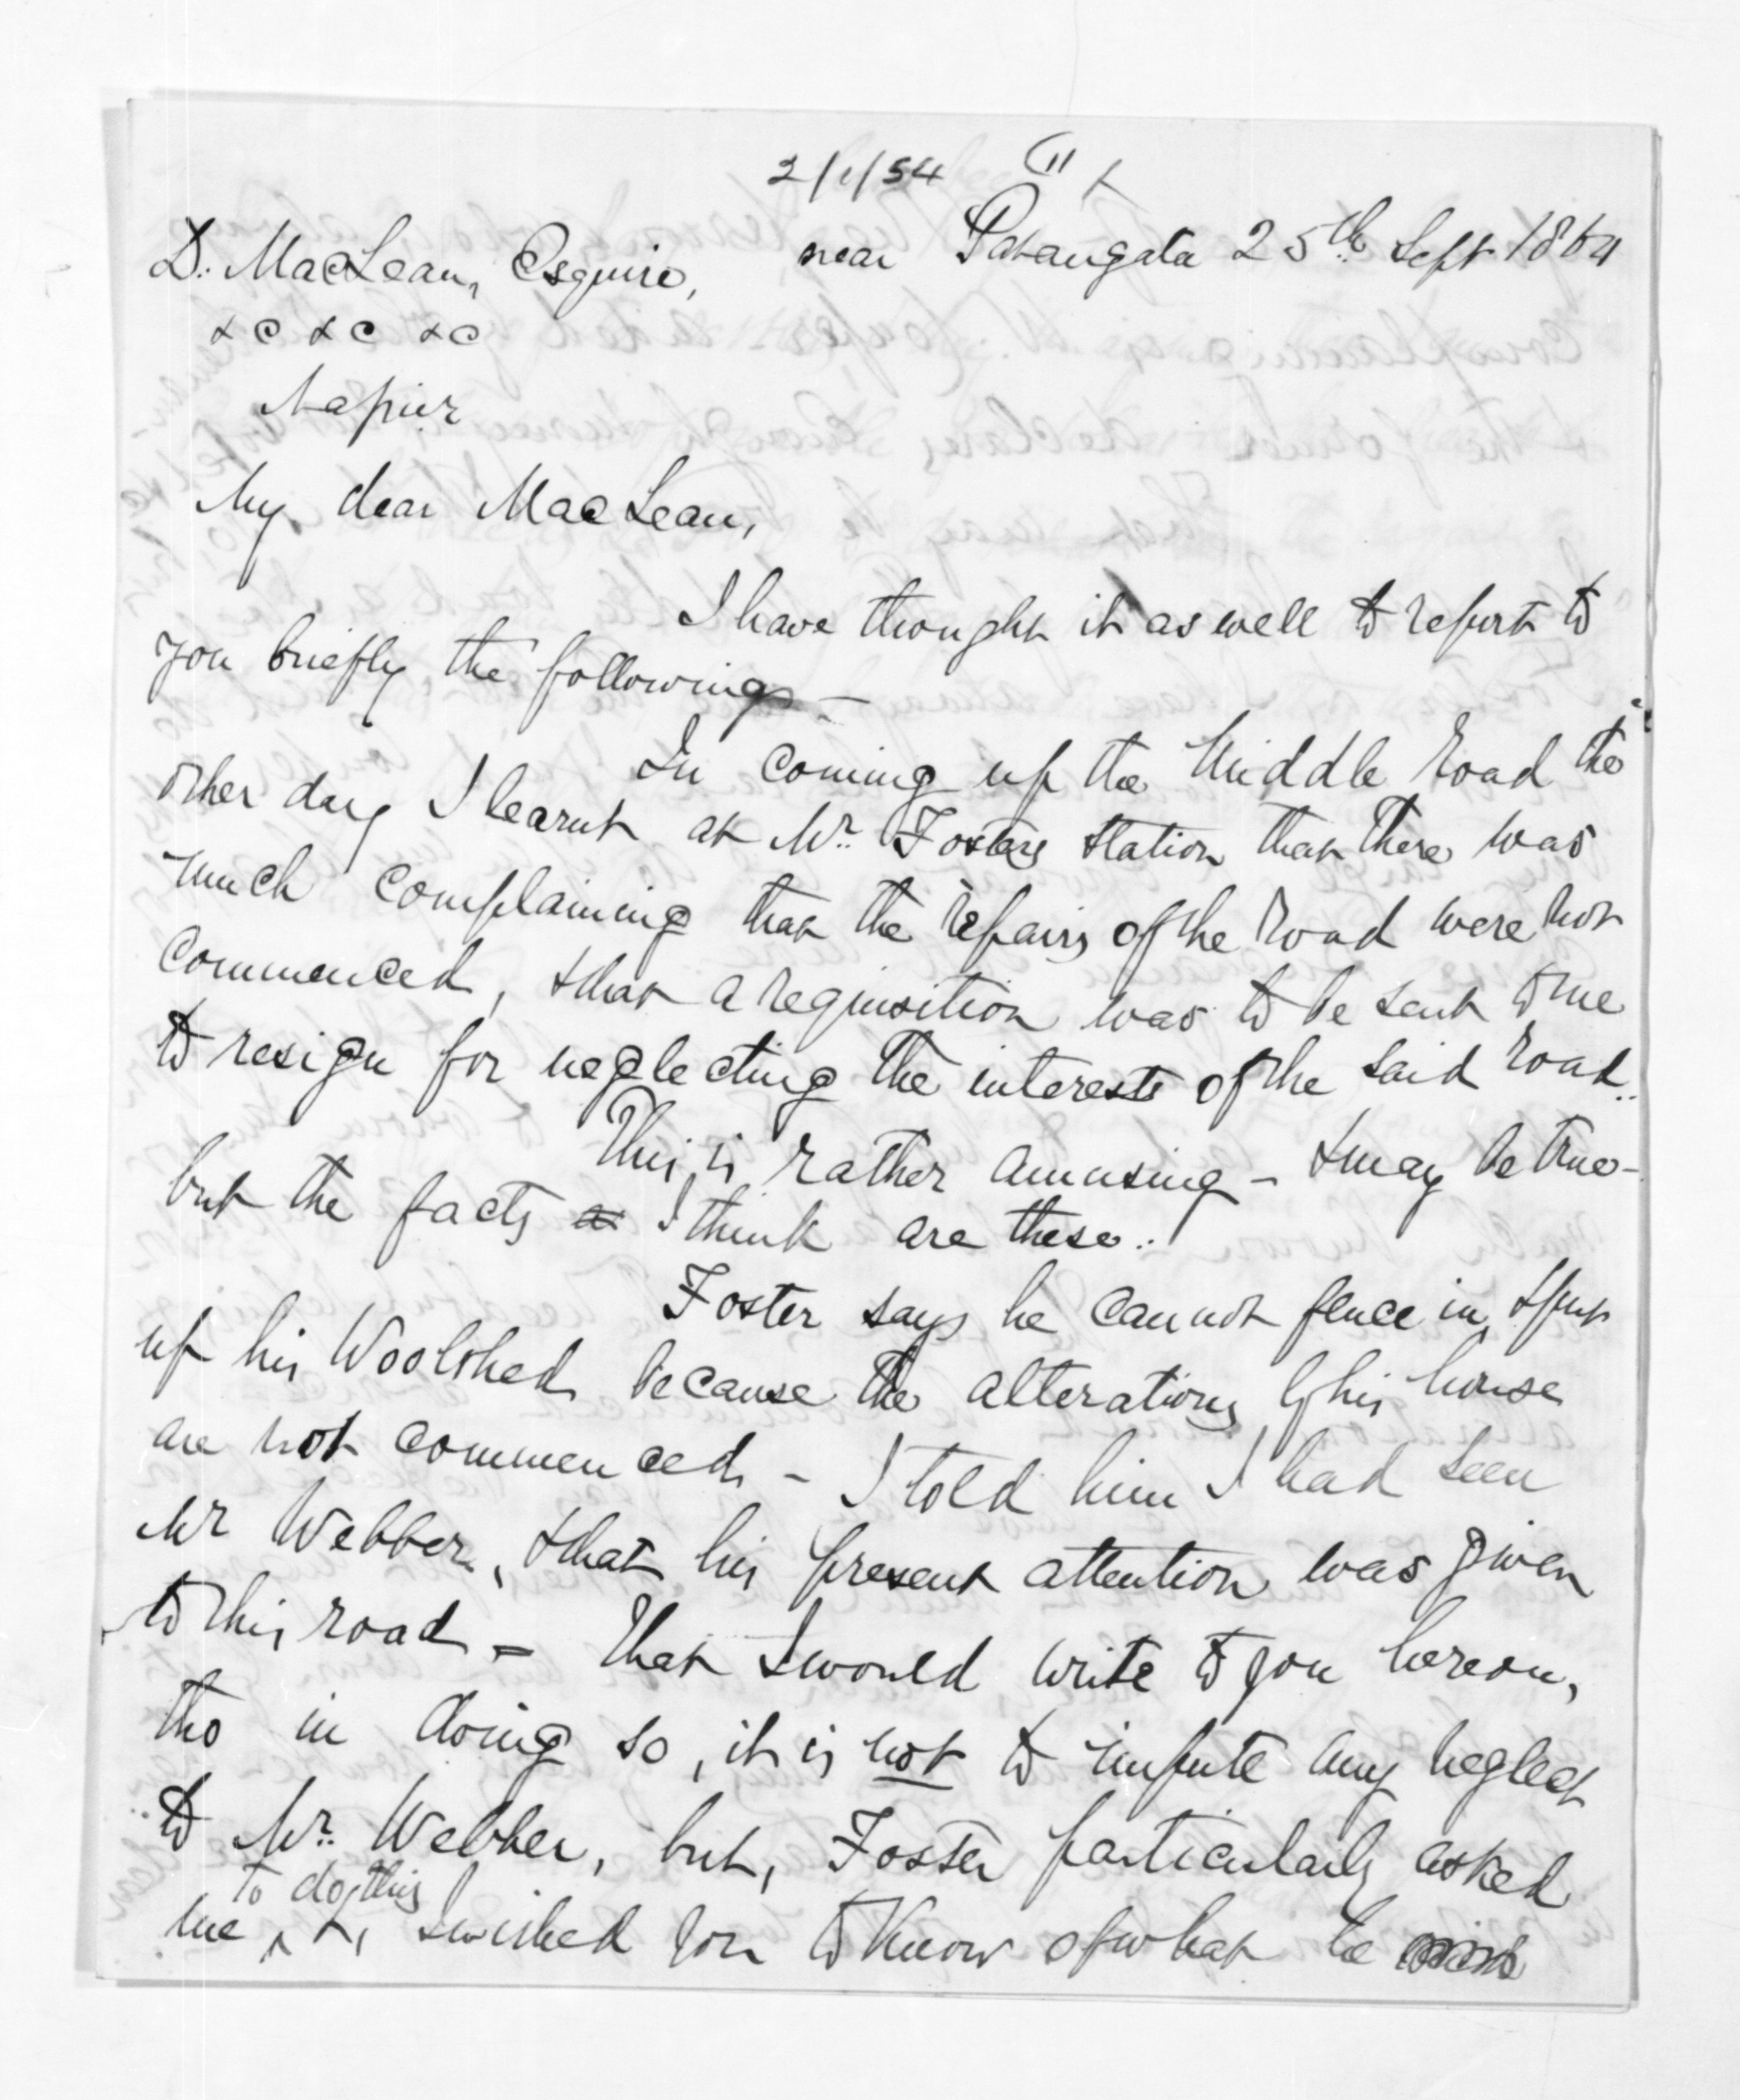 2/1/54
near Patangata 25th Sept 1864
D. MacLean, Esquire,
&c &c &c
Napier
My dear MacLean,
I have thought it as well to report to
you briefly the following -
In coming up the Middle road the
other day I learnt at Mr. Fosters station that there was
much complaining that the repairs of the road were not
commenced, & that a requisition was to be sent to me
to resign for neglecting the interests of the said road..
This is rather amusing - & may be true -
but the facts I think are these..
Foster says he cannot fence in, & put
up his Woolshed because the alterations by his house
are not commenced - I told him I had seen
Mr Webber, & that his present attention was given
to this road - that I would write to you hereon,
tho in doing so, it is not to impute any neglect
to Mr. Webber, but, Foster particularly asked
me to do this, & I wished you to know of what he